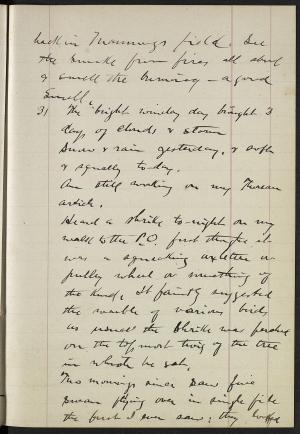 back in Mornings field. See
the smoke from fires all about
& smell the burning – a good
smell.
31 The bright windy day brought 3
days of clouds & storm
Snow & rain yesterday, & soft
& squally to-day.
Am still working on my Thoreau
article.
Heard a shrike to-night on my
walk to the P.O. first thought it
was a squeaking axletree or
pulley wheel or something of
the kind. It faintly suggested
the warble of various birds
as usual the shrike was perched
on the topmost twig of the tree
in which he sat.
Two mornings since saw five
swan flying over in single file
the first I ever saw; they